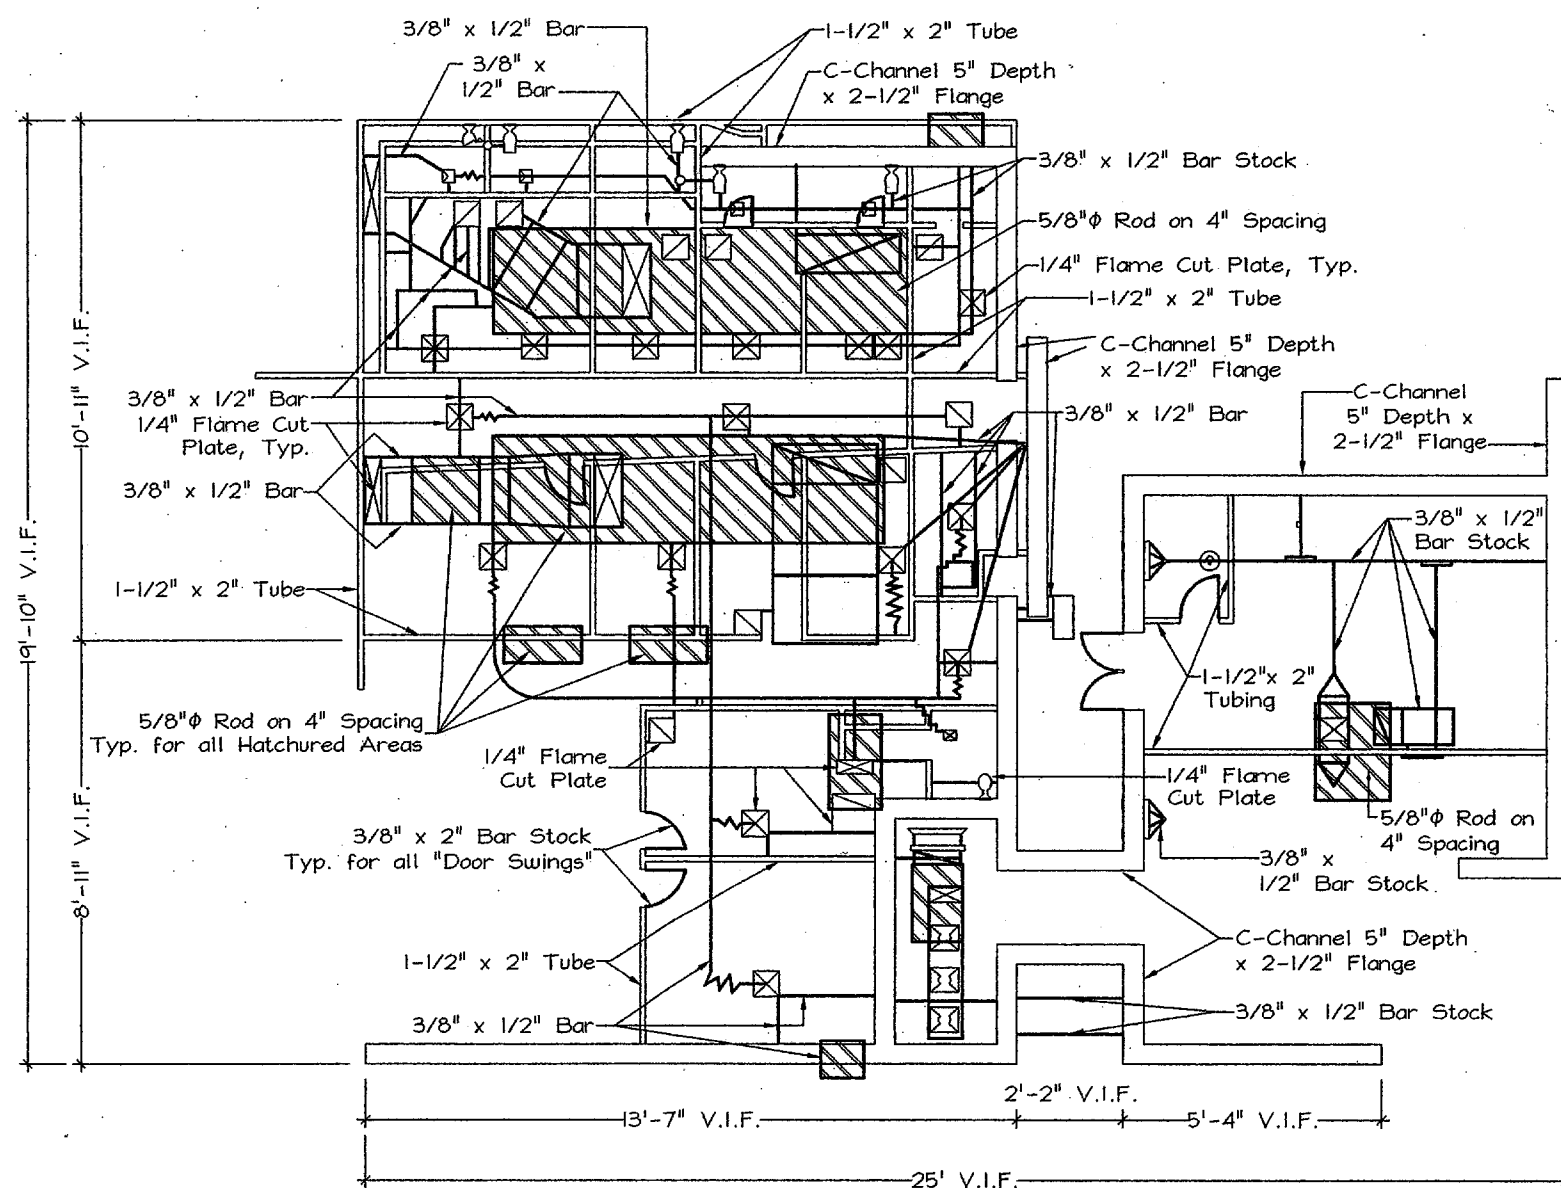 3/8" x 1/2" Bar
1-1/2" x 2" Tube
3/8" x
1/2" Bar
C-Channel 5" Depth
x 2-1/2" Flange
3/8" x 1/2" Bar Stock
5/8"φ Rod on 4" Spacing
1/4" Flame Cut Plate, Typ.
1-1/2" x 2" Tube
C-Channel 5" Depth
x 2-1/2" Flange
10'-11" V.I.F.
19'-10" V.I.F.
3/8" x 1/2" Bar
1/4" Flame Cut
Plate, Typ.
3/8" x 1/2" Bar
3/8" x 1/2" Bar
C-Channel
5" Depth x
2-1/2" Flange
3/8" x 1/2"
Bar Stock
1-1/2" x 2" Tube
1-1/2"x 2"
Tubing
5/8"φ Rod on 4" Spacing
Typ. for all Hatchured Areas
1/4" Flame
Cut Plate
1/4" Flame
Cut Plate
5/8"φ Rod on
4" Spacing
3/8" x 2" Bar Stock
Typ. for all "Door Swings"
3/8" x
1/2" Bar Stock
8'-11" V.I.F.
1-1/2" x 2" Tube
C-Channel 5" Depth
x 2-1/2" Flange
3/8" x 1/2" Bar
3/8" x 1/2" Bar Stock
2'-2" V.I.F.
13'-7" V.I.F.
5'-4" V.I.F.
25' V.I.F.